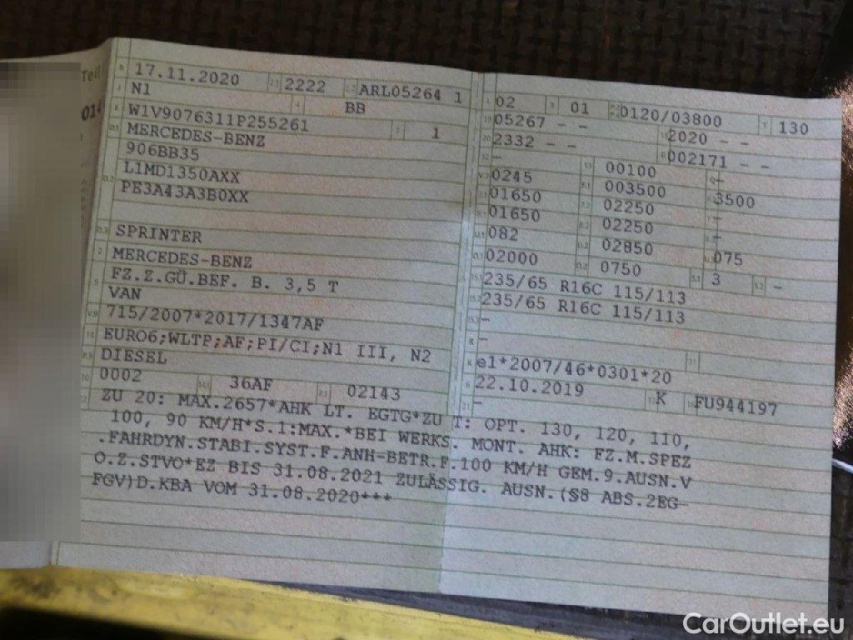 Teil
B 17.11.2020 2222 ARL05264 1
N1 BB
W1V9076311P255261 1
MERCEDES-BENZ
906BB35
L1MD1350AXX
PE3A43A3B0XX
SPRINTER
MERCEDES-BENZ
FZ.Z.GÜ.BEF. B. 3,5 T
VAN
715/2007*2017/1347AF
EURO6;WLTP;AF;PI/CI;N1 III, N2
DIESEL
0002 36AF 02143
02 01 0120/03800 130
05267 - - 2020 - -
2332 - - 002171 - -
- 00100 -
0245 003500 3500
01650 02250 -
01650 02250 -
082 02850 075
02000 0750 3 -
235/65 R16C 115/113
235/65 R16C 115/113
-
-
e1*2007/46*0301*20
22.10.2019 K FU944197
-
ZU 20: MAX.2657*AHK LT. EGTG*ZU T: OPT. 130, 120, 110,
100, 90 KM/H*S.1:MAX.*BEI WERKS. MONT. AHK: FZ.M.SPEZ
.FAHRDYN.STABI.SYST.F.ANH-BETR.F.100 KM/H GEM.9.AUSN.V
O.Z.STVO*EZ BIS 31.08.2021 ZULÄSSIG. AUSN.(§8 ABS.2EG-
FGV)D.KBA VOM 31.08.2020+++
CarOutlet.eu